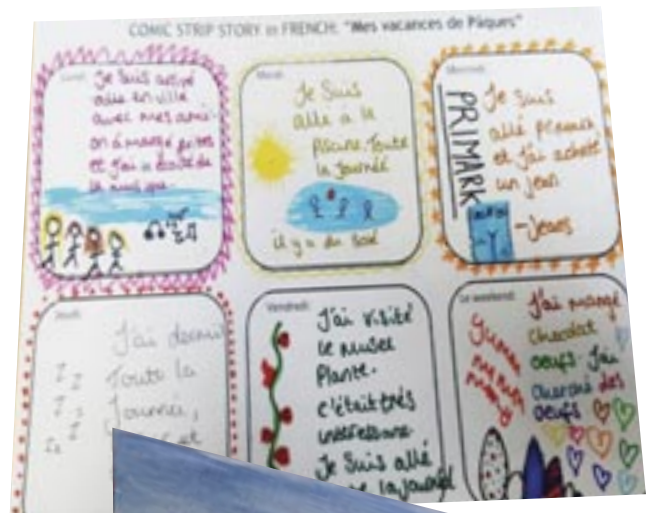 COMIC STRIP STORY in FRENCH: "Mes vacances de Pâques"
Lundi: Je Suis
alle en ville
avec mes amis
on à mangé
et J'ai
la musique
Mardi:
Je Suis
alle à la
piscine. Toute
la Journée
il y a du Soleil
Mercredi:
PRIMARK
Je Suis
allé Primark
et J'ai acheté
un jean
-Jeans
Jeudi:
J'ai dormi
Toute la
Journée,
z z
z z
z z
Vendredi:
J'ai visité
le musee
Plante.
c'était trés
Je Suis allé
la Journée
Le weekend:
J'ai mangé
Chocolat
oeufs. J'ai
des
oeufs